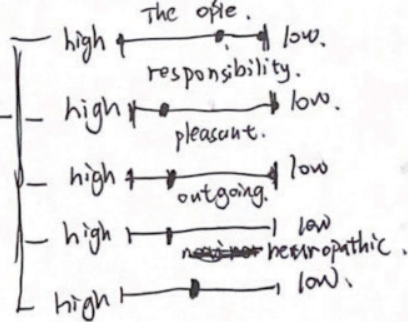 The ople.
high low.
responsibility.
high low.
pleasant.
high low
outgoing.
high low
heuropathic.
high low.